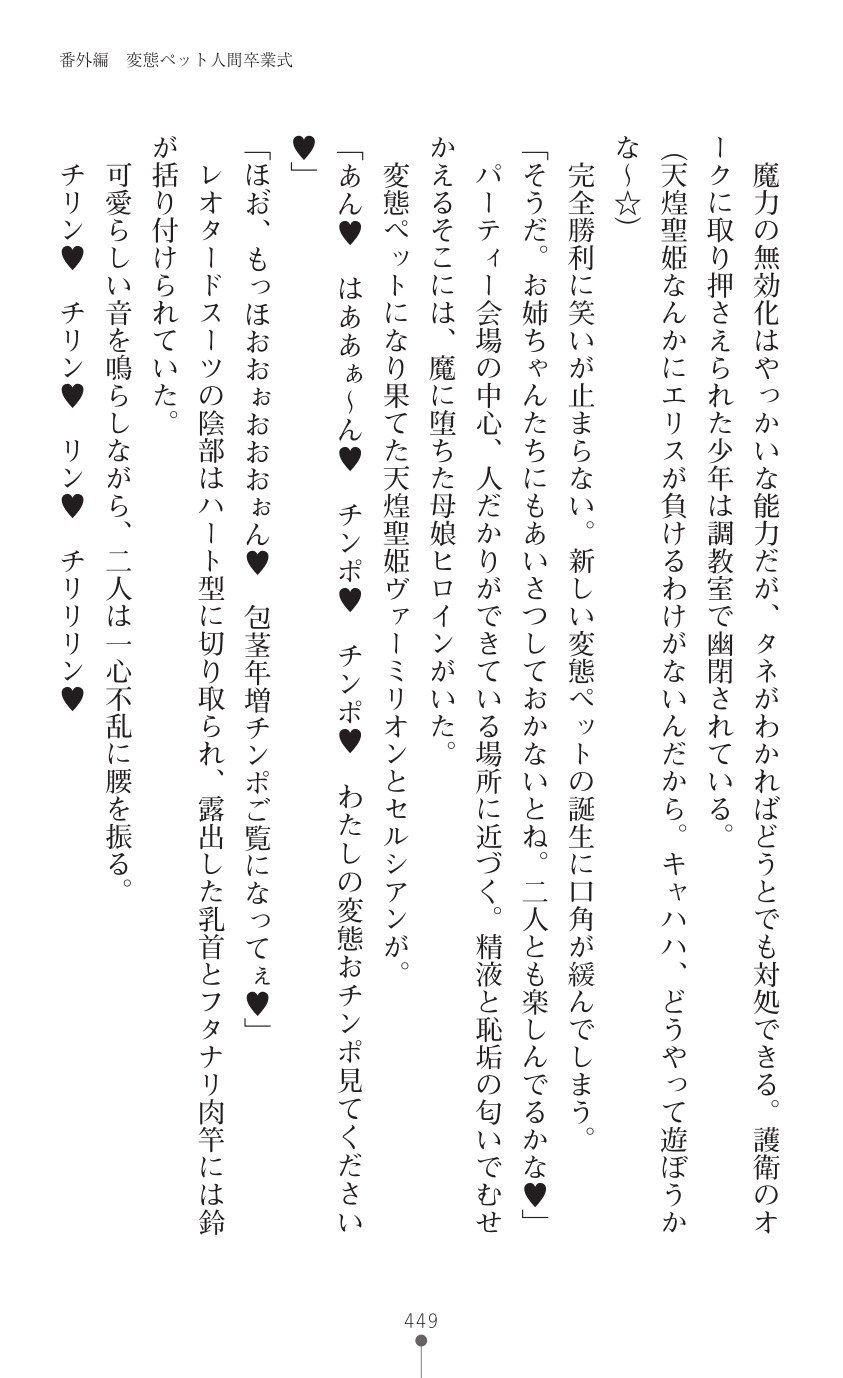 番外編　変態ペット人間卒業式
魔力の無効化はやっかいな能力だが、タネがわかればどうとでも対処できる。護衛のオ
ークに取り押さえられた少年は調教室で幽閉されている。
(天煌聖姫なんかにエリスが負けるわけがないんだから。キャハハ、どうやって遊ぼうか
な～☆)
完全勝利に笑いが止まらない。新しい変態ペットの誕生に口角が緩んでしまう。
「そうだ。お姉ちゃんたちにもあいさつしておかないとね。二人とも楽しんでるかな♥」
パーティー会場の中心、人だかりができている場所に近づく。精液と恥垢の匂いでむせ
かえるそこには、魔に堕ちた母娘ヒロインがいた。
変態ペットになり果てた天煌聖姫ヴァーミリオンとセルシアンが。
「あん♥　はああぁ～ん♥　チンポ♥　チンポ♥　わたしの変態おチンポ見てください
♥」
「ほお゙、もっほおおぉおおおぉん♥　包茎年増チンポご覧になってぇ♥」
レオタードスーツの陰部はハート型に切り取られ、露出した乳首とフタナリ肉竿には鈴
が括り付けられていた。
可愛らしい音を鳴らしながら、二人は一心不乱に腰を振る。
チリン♥　チリン♥　リン♥　チリリリン♥
449